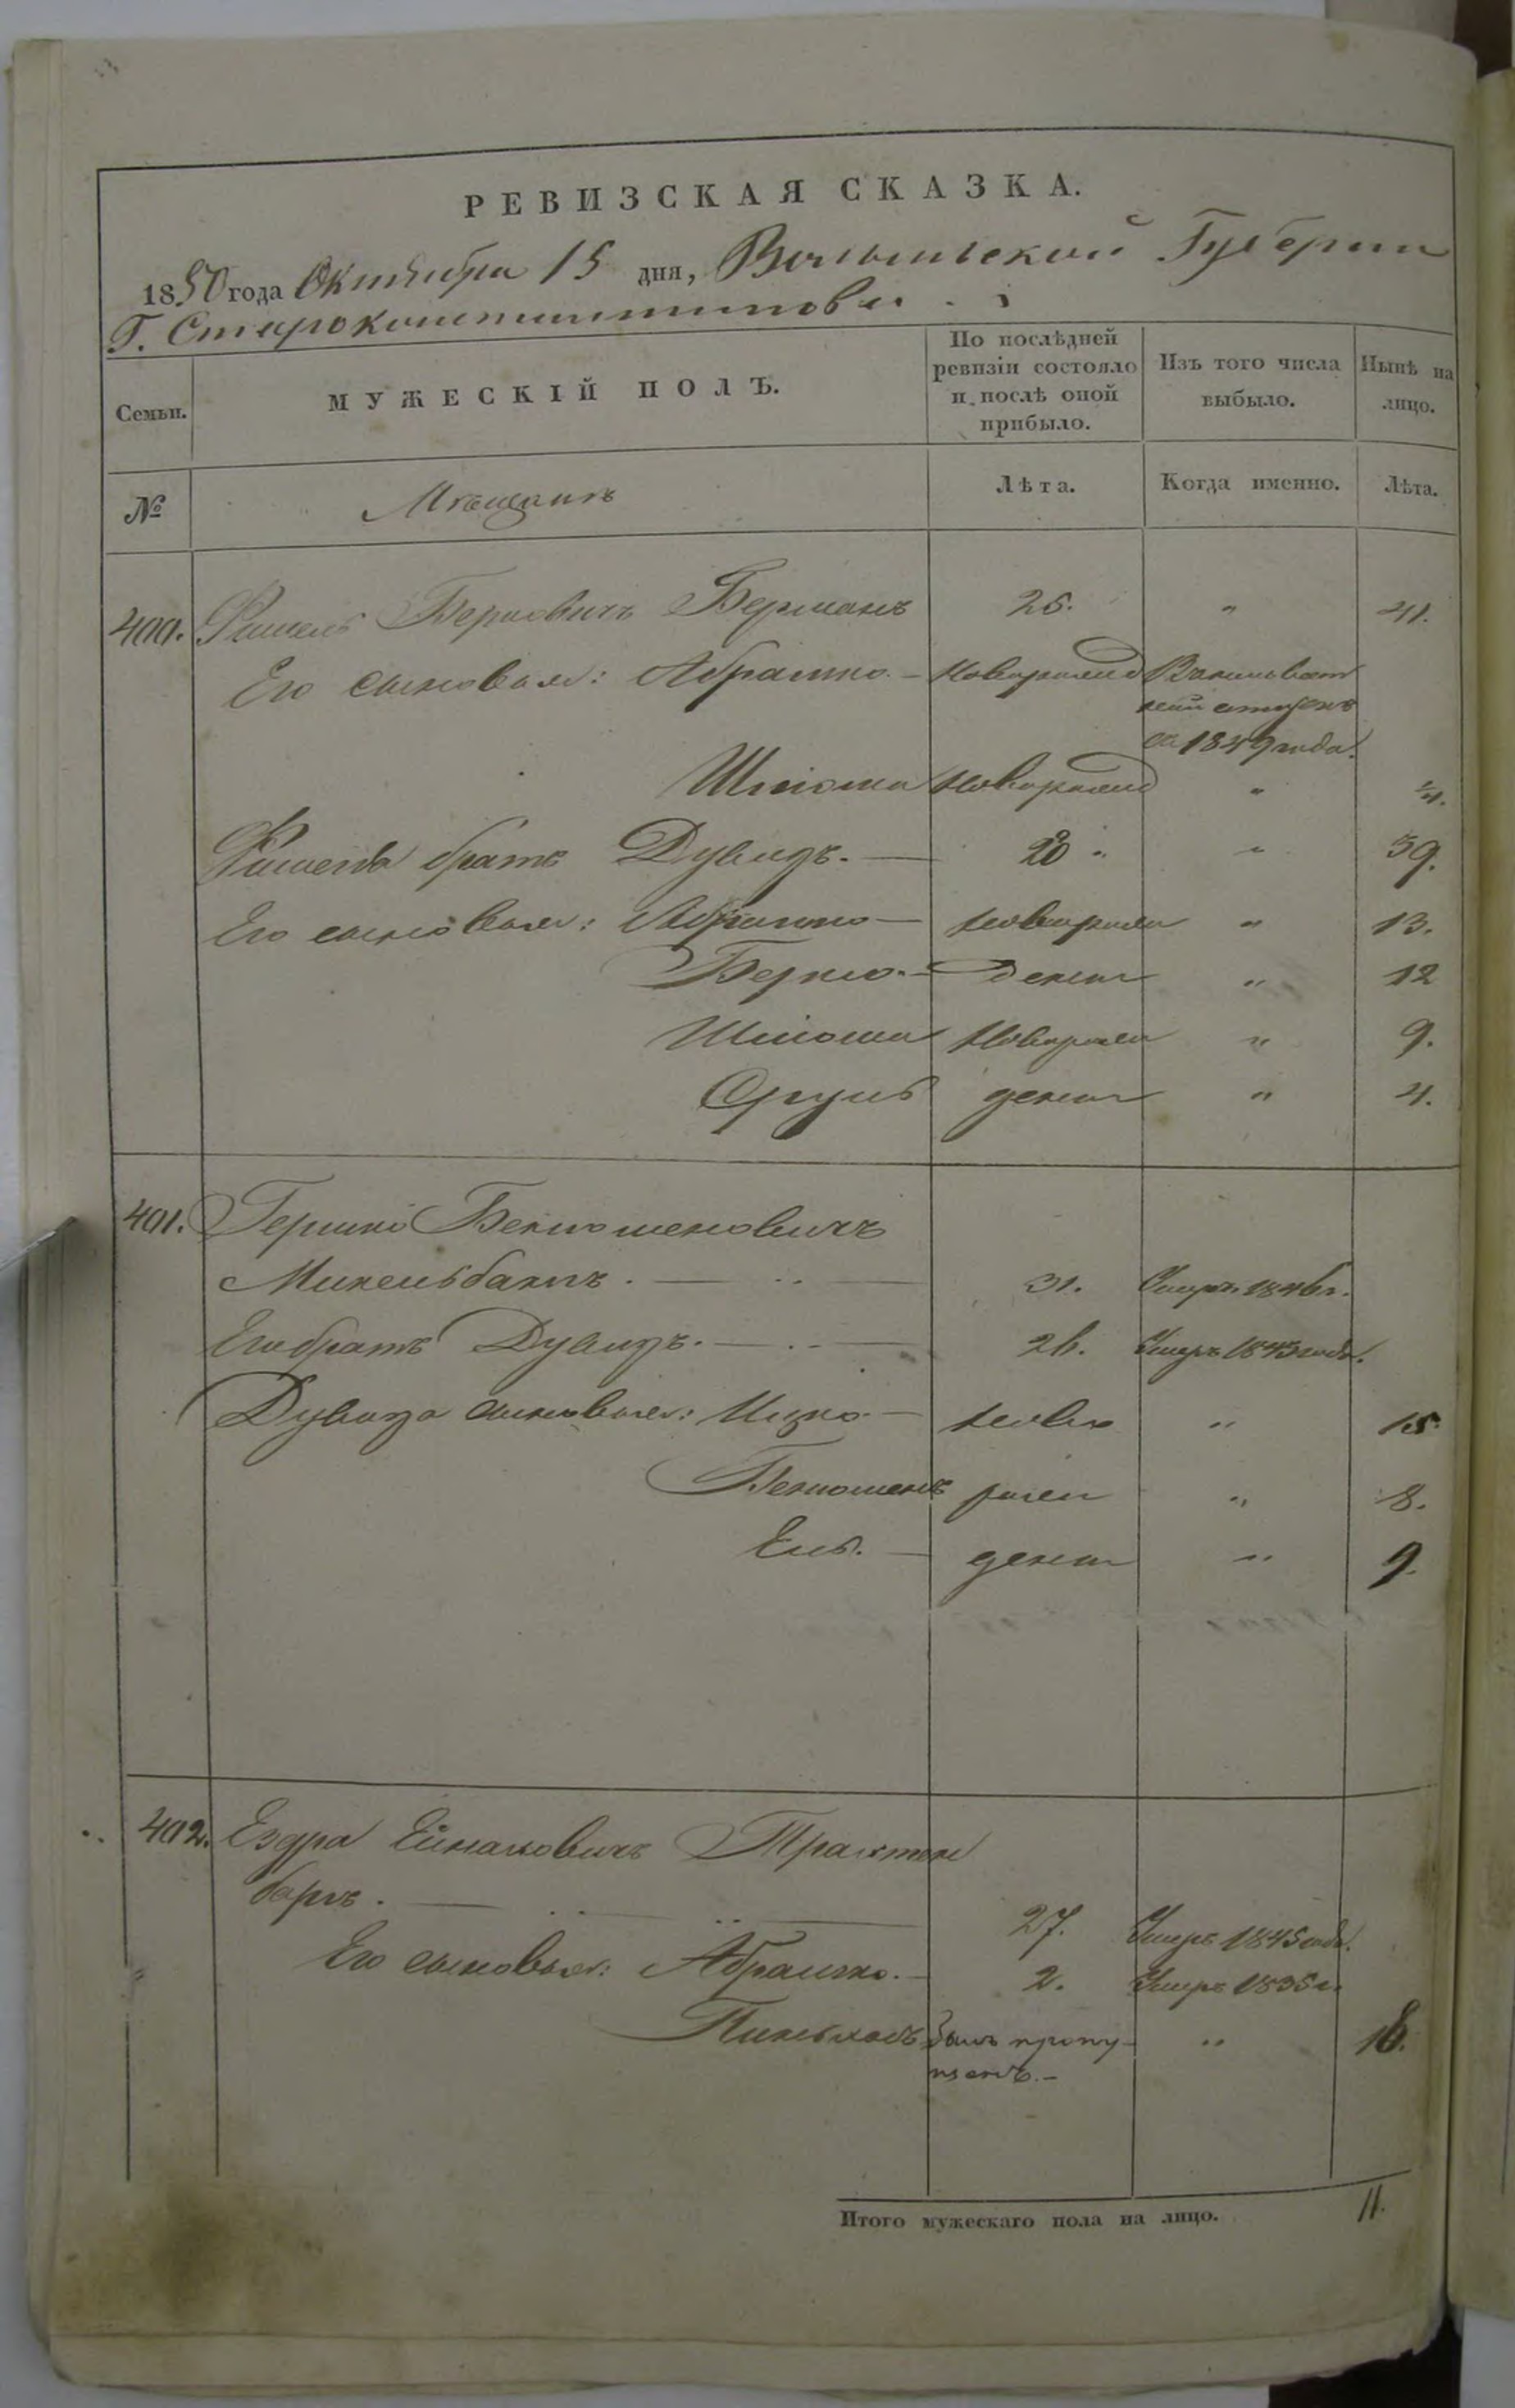 РЕВИЗСКАЯ СКАЗКА.
1850 года Октября 15 дня, Волынской Губернии
Г. Староконстантинова
Семьи. МУЖЕСКІЙ ПОЛЪ. По послѣдней ревизіи состояло и послѣ оной прибыло. Изъ того числа выбыло. Нынѣ на лицо.
№ Мѣщанъ Лѣта. Когда именно. Лѣта.
400. Фишель Берковичъ Берманъ 26. " 41.
Его сыновья: Абрамко. — Новорожд
въ 1849 года.
Шліома новорожд "
Фишеля братъ Дувидъ. — "  39.
Его сыновья: Абрамко — новорож " 13.
Берко. — денъ " 12
Шліома Новорож " 9.
Сруль денъ " 4.
401. Гершко Беньюменовичъ
Микельбанкъ. — .. — 31. Умеръ 1846 г.
Его братъ Дувидъ. — .. — 26. Умеръ 1843 года.
Дувида сыновья: Ицко. — ново " 15.
Беньюменъ рож " 8.
Ель. — дены " 9.
402. Ездра Трахтен
баргъ. — .. — .. — 27. Умеръ 1845 года.
Его сыновья: Абрамко. — 2. Умеръ 1835 г.
Пиньхасъ Былъ пропу- " 16.
щенъ. —
Итого мужескаго пола на лицо. 11.